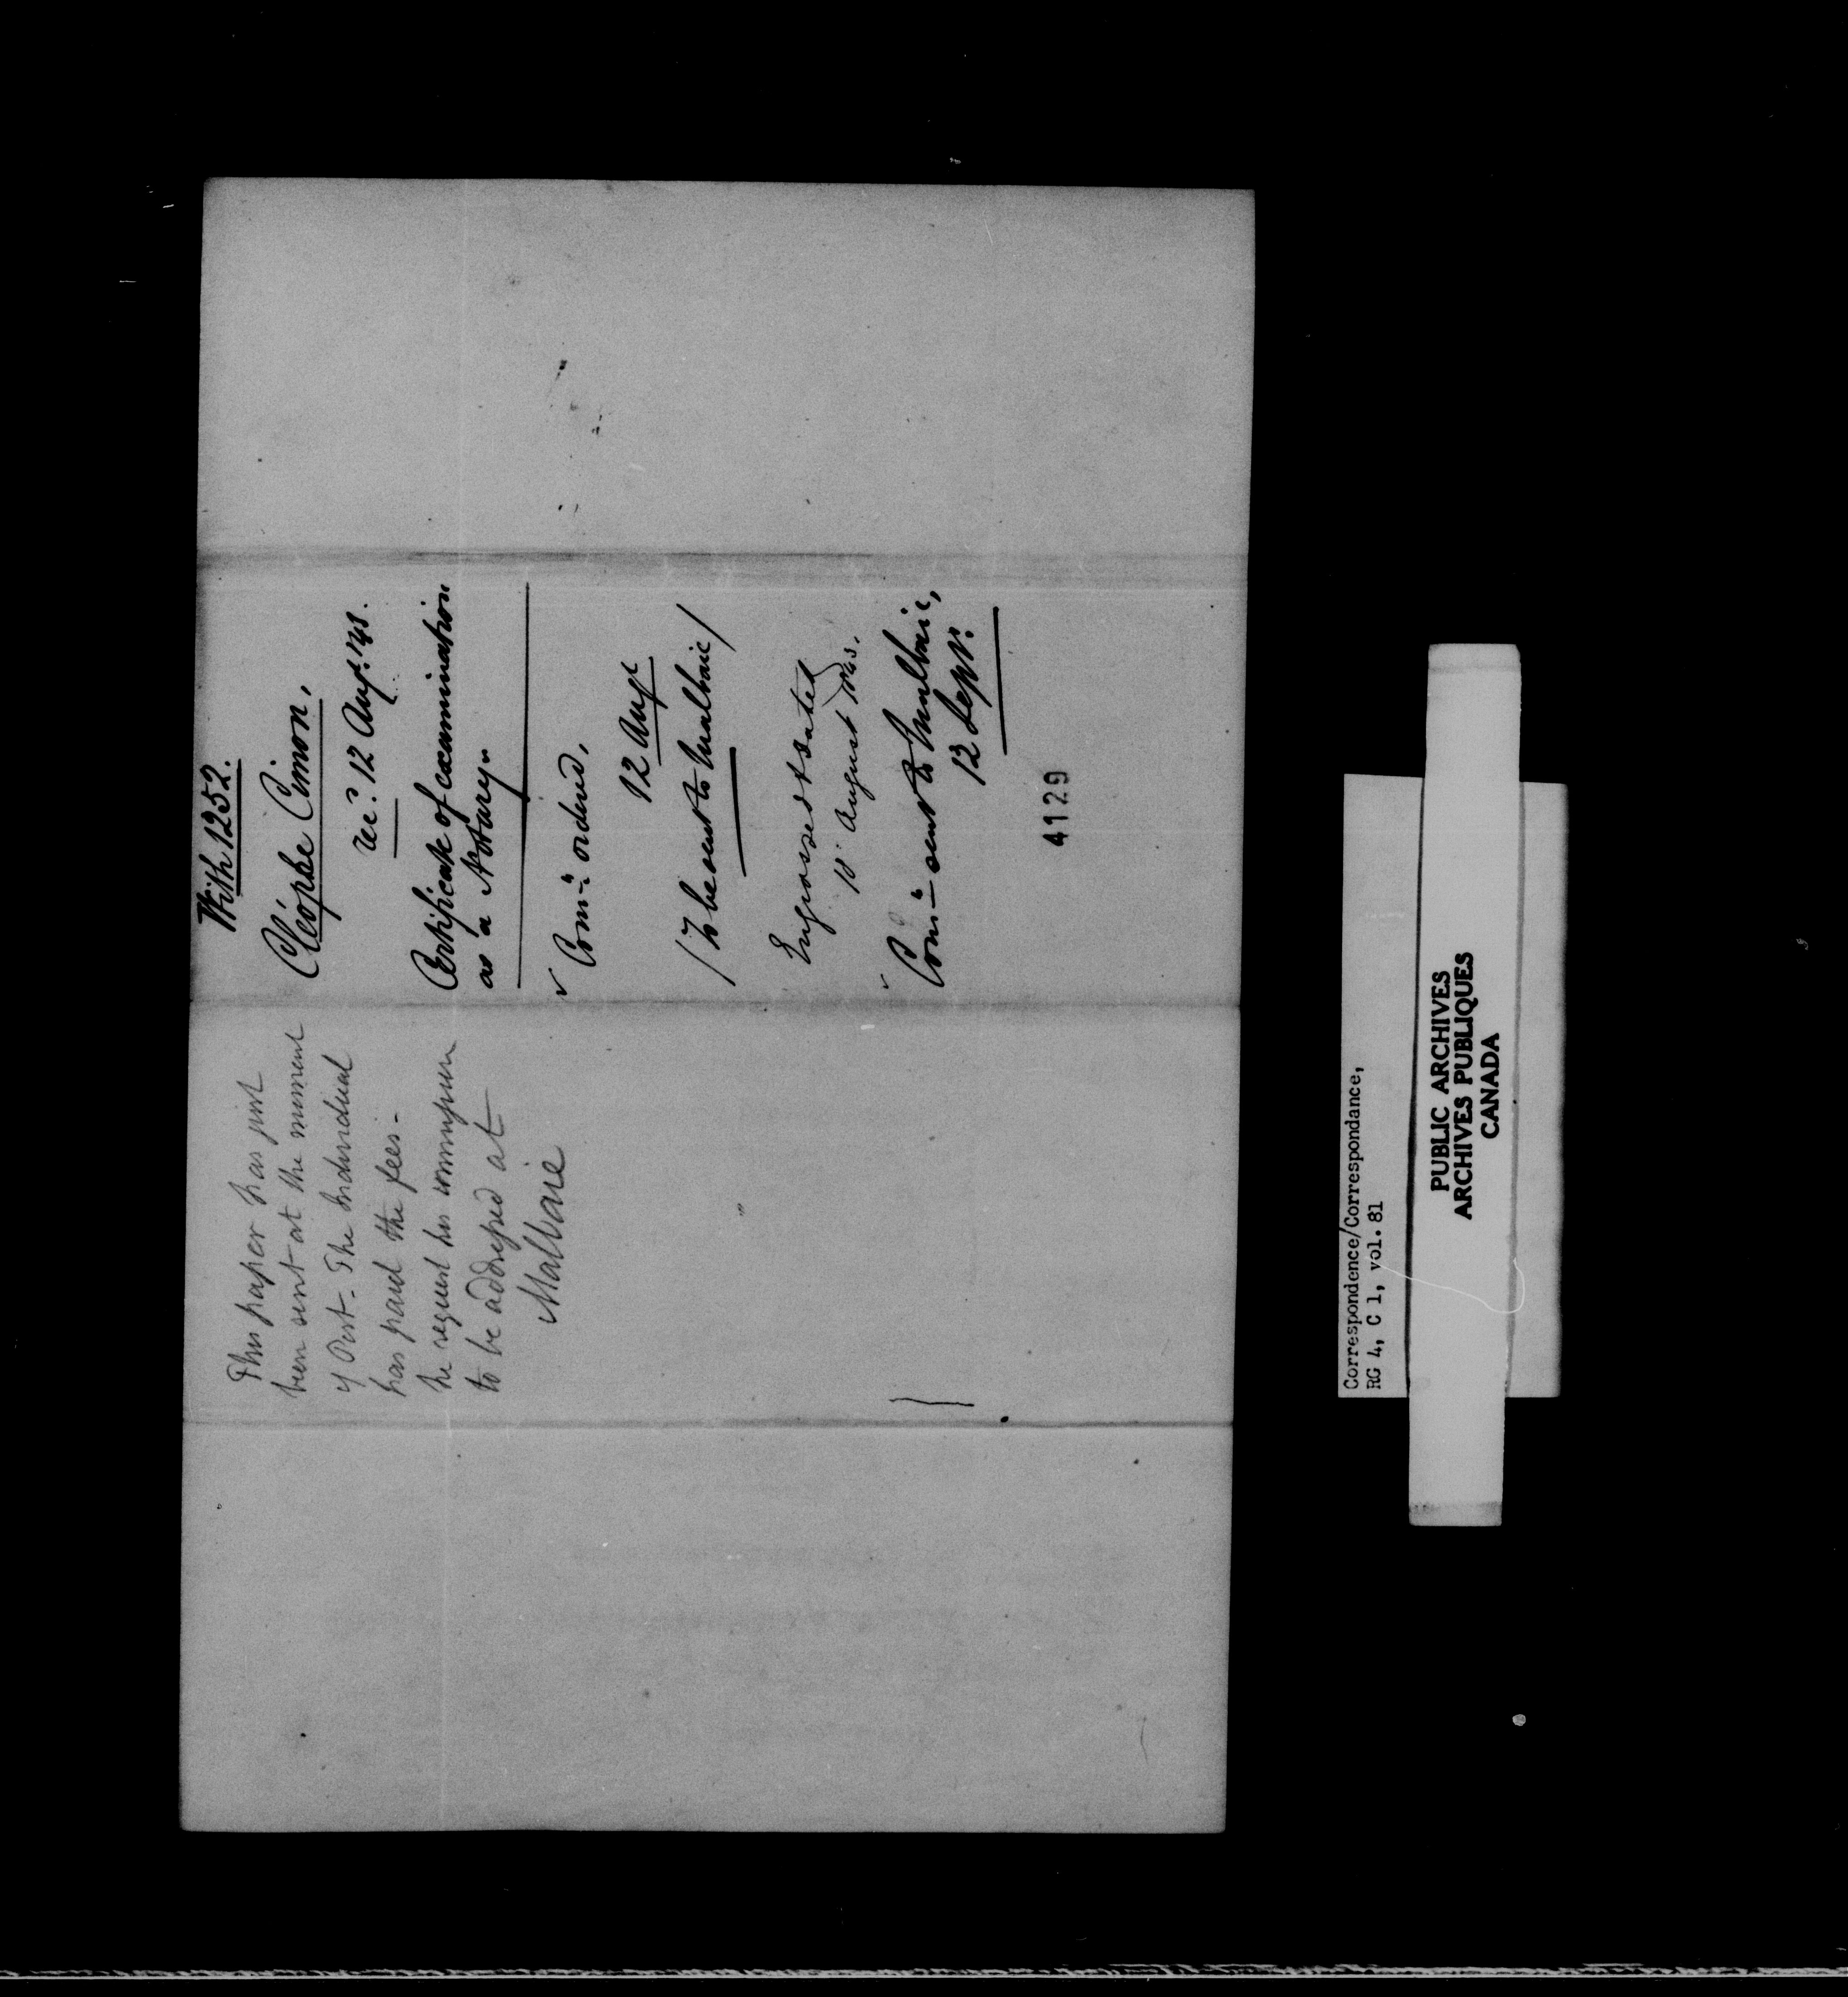 With 1252.
Cléophe Cimon,
Rec? 12 Augt. '43.
Certificate of examination
as a Notary.
Comn. ordered,
12 Augt
/ To be sent to Malbaie /
Engrossed & dated
18 August 1843.
Comn. sent to Malbaie,
12 Sept.
4129
This paper has just
been sent at the moment
of Post. The individual
has paid the fees.
he request his commission
to be addressed at
Malbaie
Correspondence/Correspondance,
RG 4, C 1, vol. 81
PUBLIC ARCHIVES
ARCHIVES PUBLIQUES
CANADA